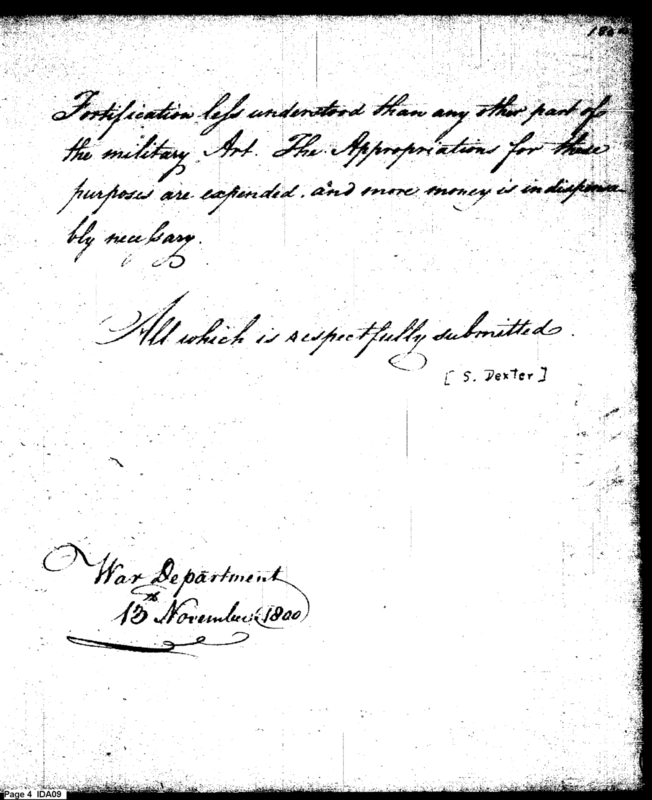 Fortification less understood than any other part of
the military Art. The Appropriations for these
purposes are expended, and more money is indispensa
bly necessary.
All which is respectfully submitted.
[ S. Dexter ]
War Department
13th November 1800
Page 4 IDA09